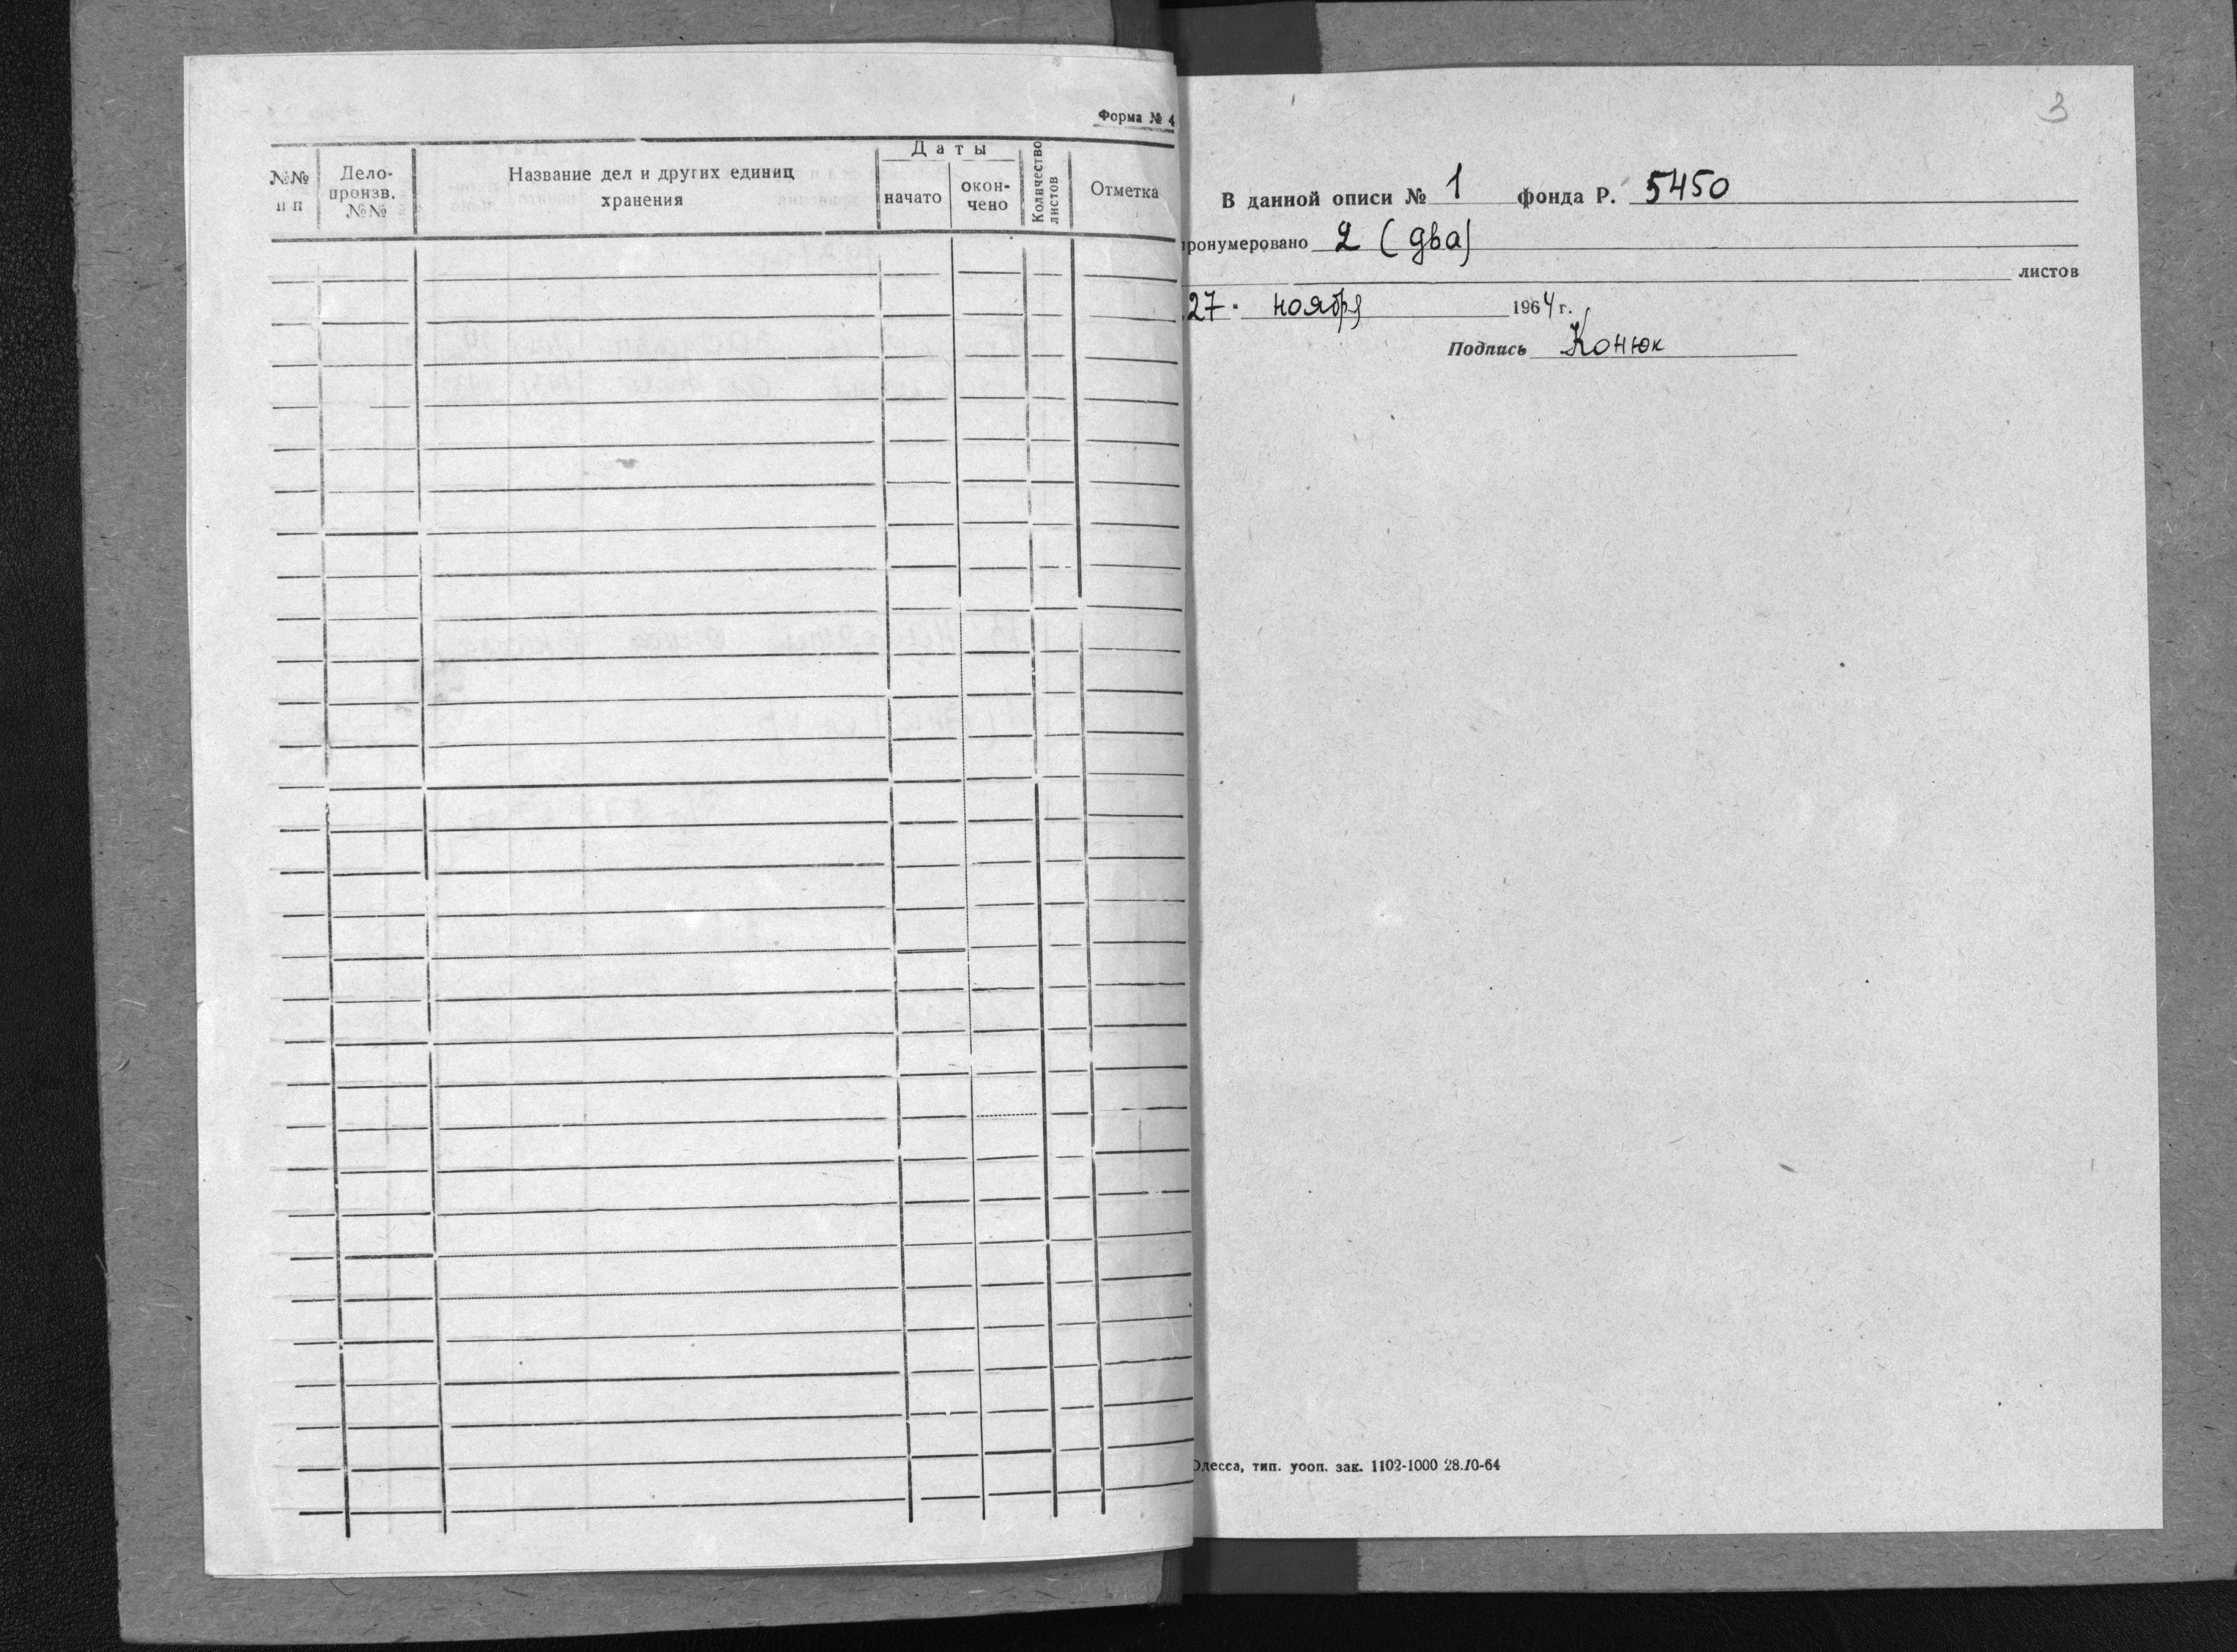 Форма № 4
№№ п п
Дело-
произв.
№№
Название дел и других единиц
хранения
Даты
начато
окон-
чено
Количество
листов
Отметка
3
В данной описи № 1 фонда Р. 5450
пронумеровано 2 (два)
листов
27 " ноября 1964 г.
Подпись Конюк
Одесса, тип. уооп. зак. 1102-1000 28.10-64